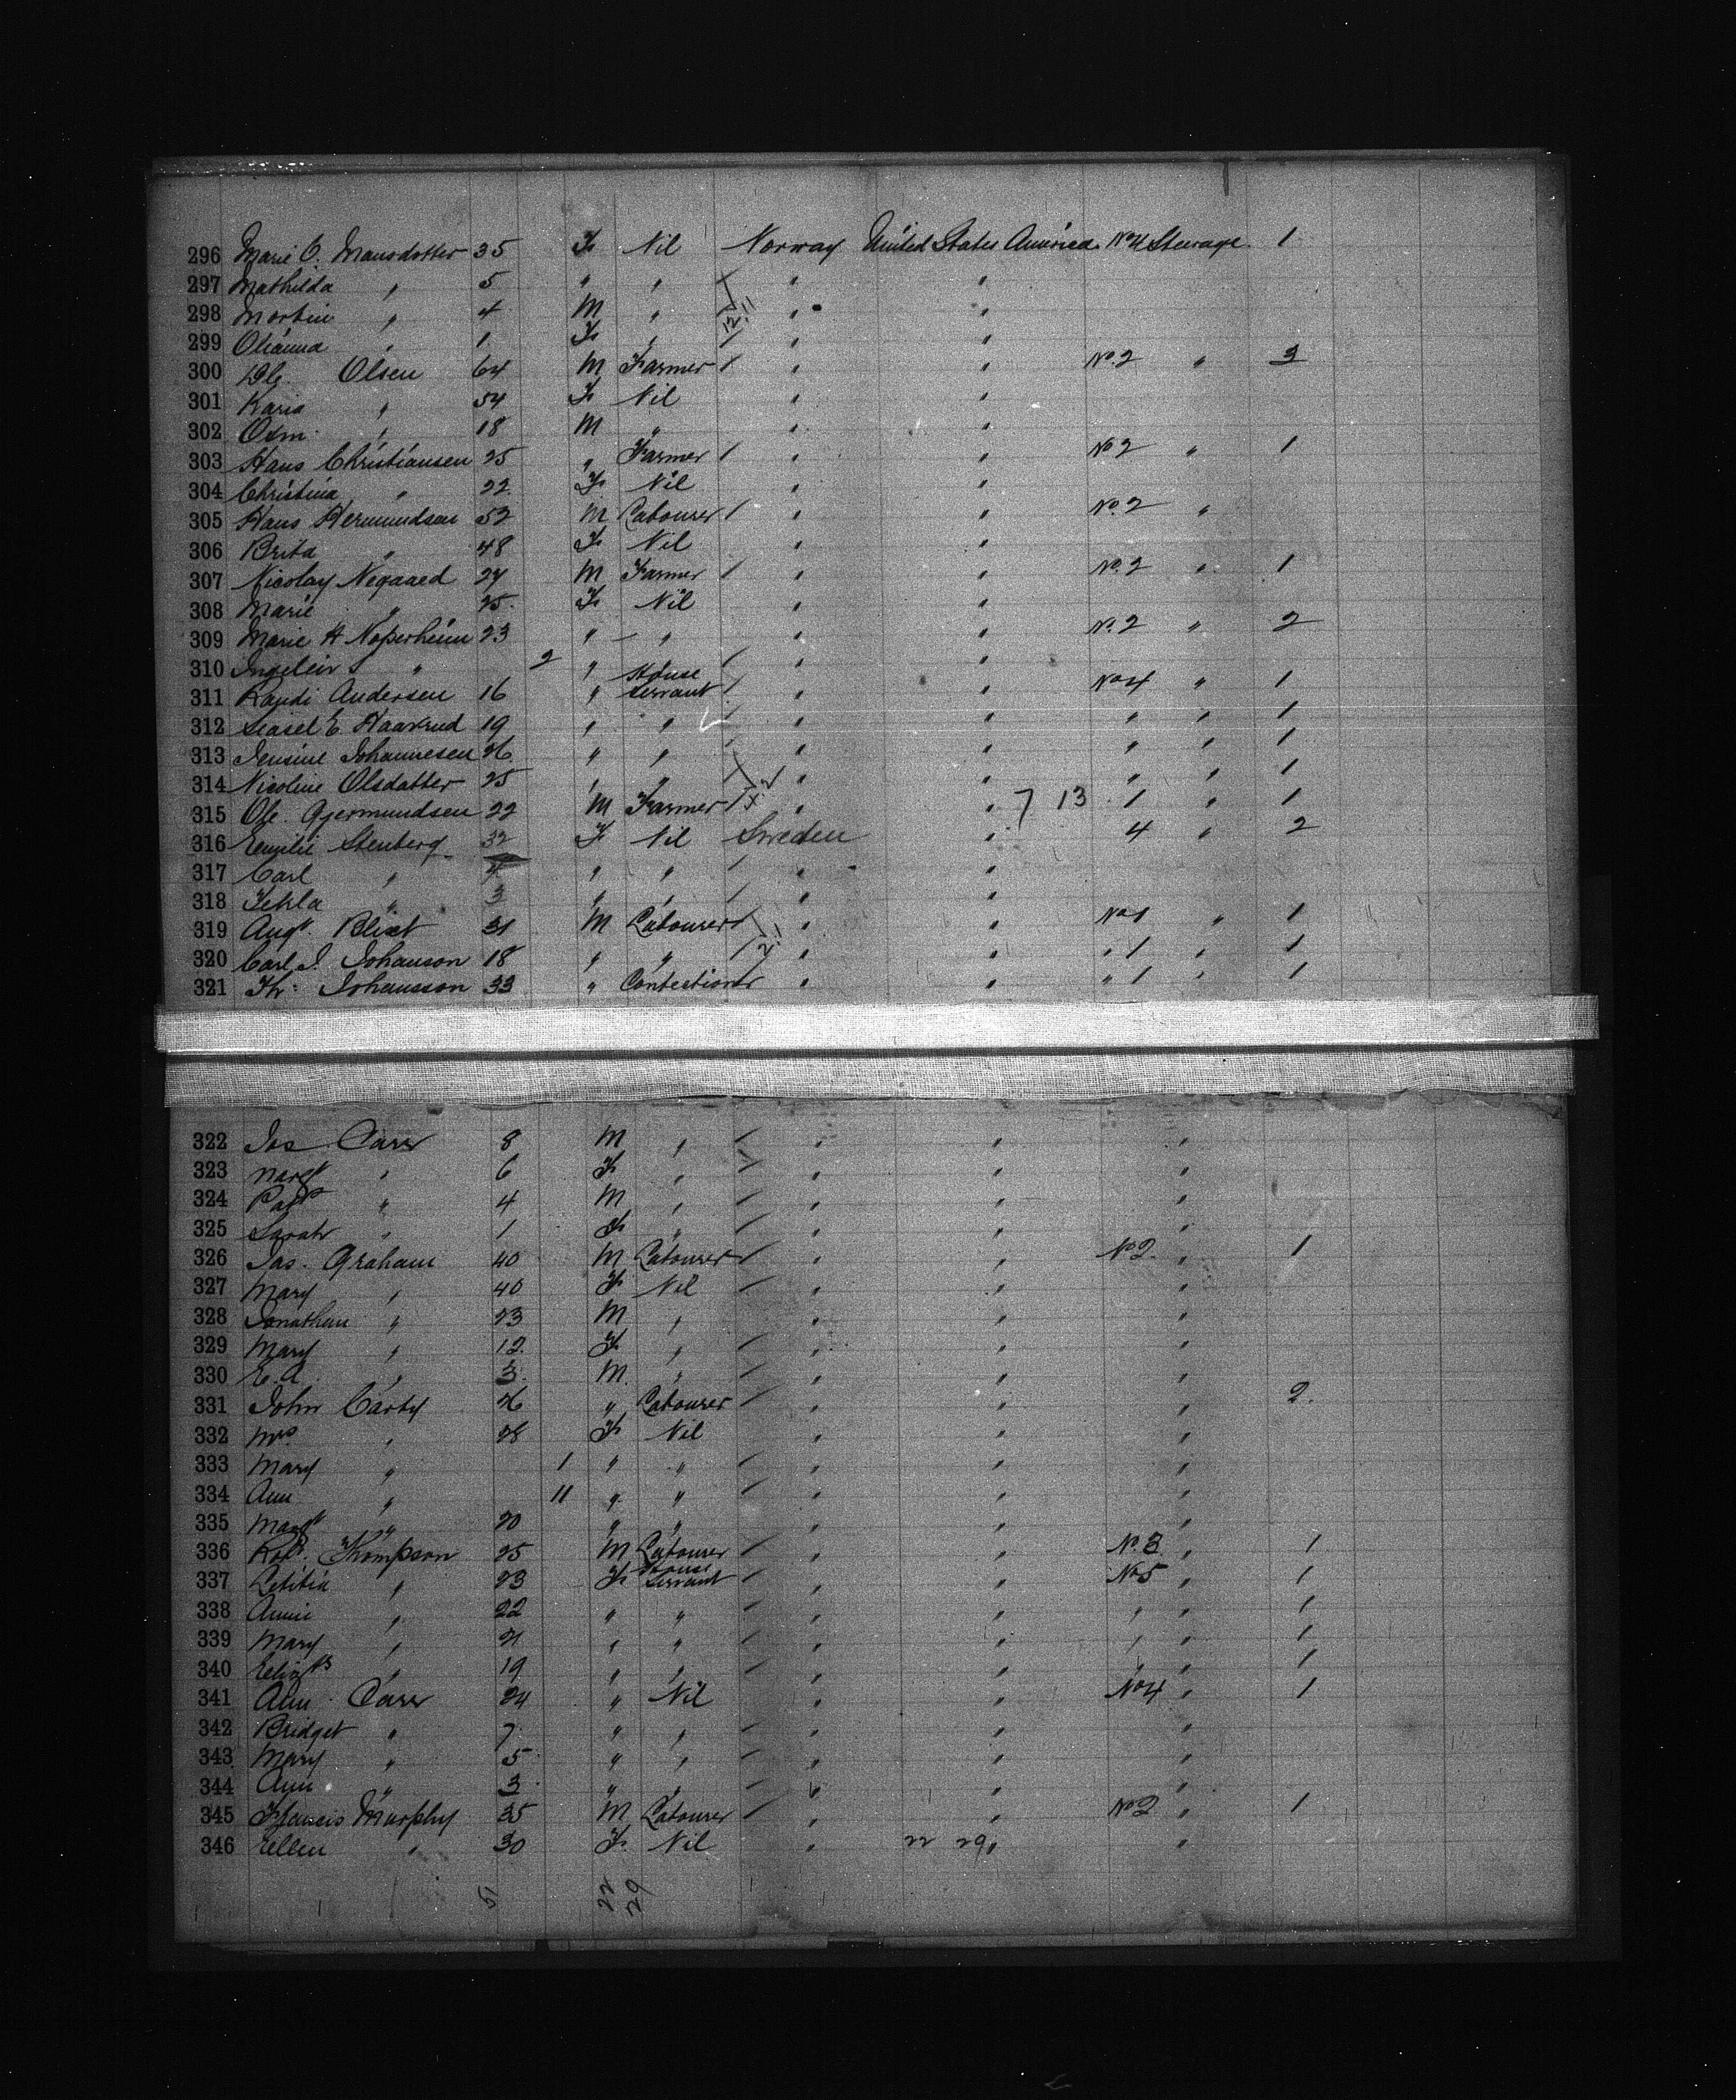 296 Marie O. Mansdotter 35 F Nil Norway United States America No 4 Steerage 1
297 Mathilda " 5 " " " "
298 Martin " 4 M " " "
299 Olianna " 1 F " " "
300 Ole Olsen 64 M Farmer / " " No. 2 " 3
301 Kari " 54 F Nil " "
302 " 18 M " " "
303 Hans Christiansen 25 " Farmer / " " No 2 " 1
304 Christina " 22 F Nil " "
305 Hans Hermundsen 52 M Labourer / " " No. 2 "
306 Brita " 48 F Nil " "
307 Nicolay Negaard 24 M Farmer / " " No. 2 " 1
308 Marie " 25 F Nil " "
309 Marie H 23 " " " " No. 2 " 2
310 " 2 " / " "
311 Randi Andersen 16 " House Servant / " " No 4 " 1
312 19 " " / " " " " 1
313 Jensine Johannesen 26 " " / " " " " 1
314 Nicoline Olsdatter 25 " " / " " " " 1
315 Ole Gjermundsen 22 M Farmer / " " 7 13 1 " 1
316 Emilie Stenberg 32 F Nil Sweden " 4 " 2
317 Carl " 4 " " / " "
318 Tekla " 3 " " / " "
319 Augt. Blixt 31 M Labourer / " " No 1 " 1
320 Carl J. Johanson 18 " " / " " " 1 " 1
321 Johansson 33 " " " " 1 " 1
322 Jas Carr 8 M " / " " "
323 Margt " 6 F " / " " "
324 Patk " 4 M " / " " "
325 Sarah " 1 F " / " " "
326 Jas. Graham 40 M Labourer / " " No 2. " 1
327 Mary " 40 F Nil / " " "
328 Jonathan " 23 M " " " "
329 Mary " 12 F " / " " "
330 E. A. " 3 M " / " " "
331 John Carty 26 " Labourer / " " " 2.
332 Mrs " 28 F Nil " " "
333 Mary " 1 " " / " " "
334 Ann " 11 " " / " " "
335 Margt " 20 " " " " "
336 Robt. Thompson 25 M Labourer / " " No. 3 " 1
337 Letitia " 23 F House Servant / " " No 5 " 1
338 Annie " 22 " " / " " " " 1
339 Mary " 21 " " / " " " " 1
340 Elizth " 19 " " / " " " " 1
341 Ann Carr 24 " Nil " " No 4 " 1
342 Bridget " 7 " " / " " "
343 Mary " 5 " " / " " "
344 Ann " 3 " " / " " "
345 Francis Murphy 35 M Labourer / " " No 2 " 1
346 Ellen " 30 F Nil " 22 29 " "
51 22 29